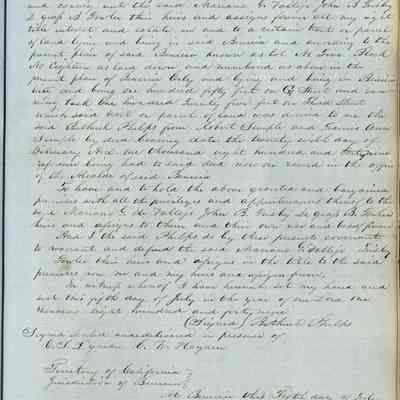 and convey unto the said Mariano G. Vallejo John B. Frisby
& Leroy B. Fowler their heirs and assigns forever all my right
title interest and estate in and to a certain tract or parcel
of land lying and being in said Benicia according to the
present plan of said Benicia known as Lot No Four Block
No Eighteen as laid down and numbered as above in the
present plan of Benicia City and lying and being in Benicia
and being one hundred fifty feet on G Street and run-
ning back one hundred twenty five feet on Third Street
which said lot or parcel of land was deeded to me the
said Bethuel Phelps from Robert Semple and Francis Ann
Semple by deed bearing date the twenty sixth day of
One thousand eight hundred and forty nine
reference being had to said deed now on record in the office
of the Alcalde of said Benicia
To have and to hold the above granted and bargained
premises with all the privileges and appurtenances thereof to the
said Mariano G. de Vallejo John B. Frisby Leroy B. Fowler
heirs and assigns to them and their own use and behoof forever
And I the said Phelps do by these presents covenant
to warrant and defend the said Mariano G. Vallejo Frisby
Fowler their heirs and assigns in the title to the said
premises from me and my heirs and assigns forever
In witness whereof I have hereunto set my hand and
seal this fifth day of July in the year of our Lord one
thousand eight hundred and forty nine
(Signed) Bethuel Phelps
Signed sealed and delivered in presence of
C. W. Hayden
Territory of California }
Jurisdiction of Benicia }
At Benicia this Fifth day of July